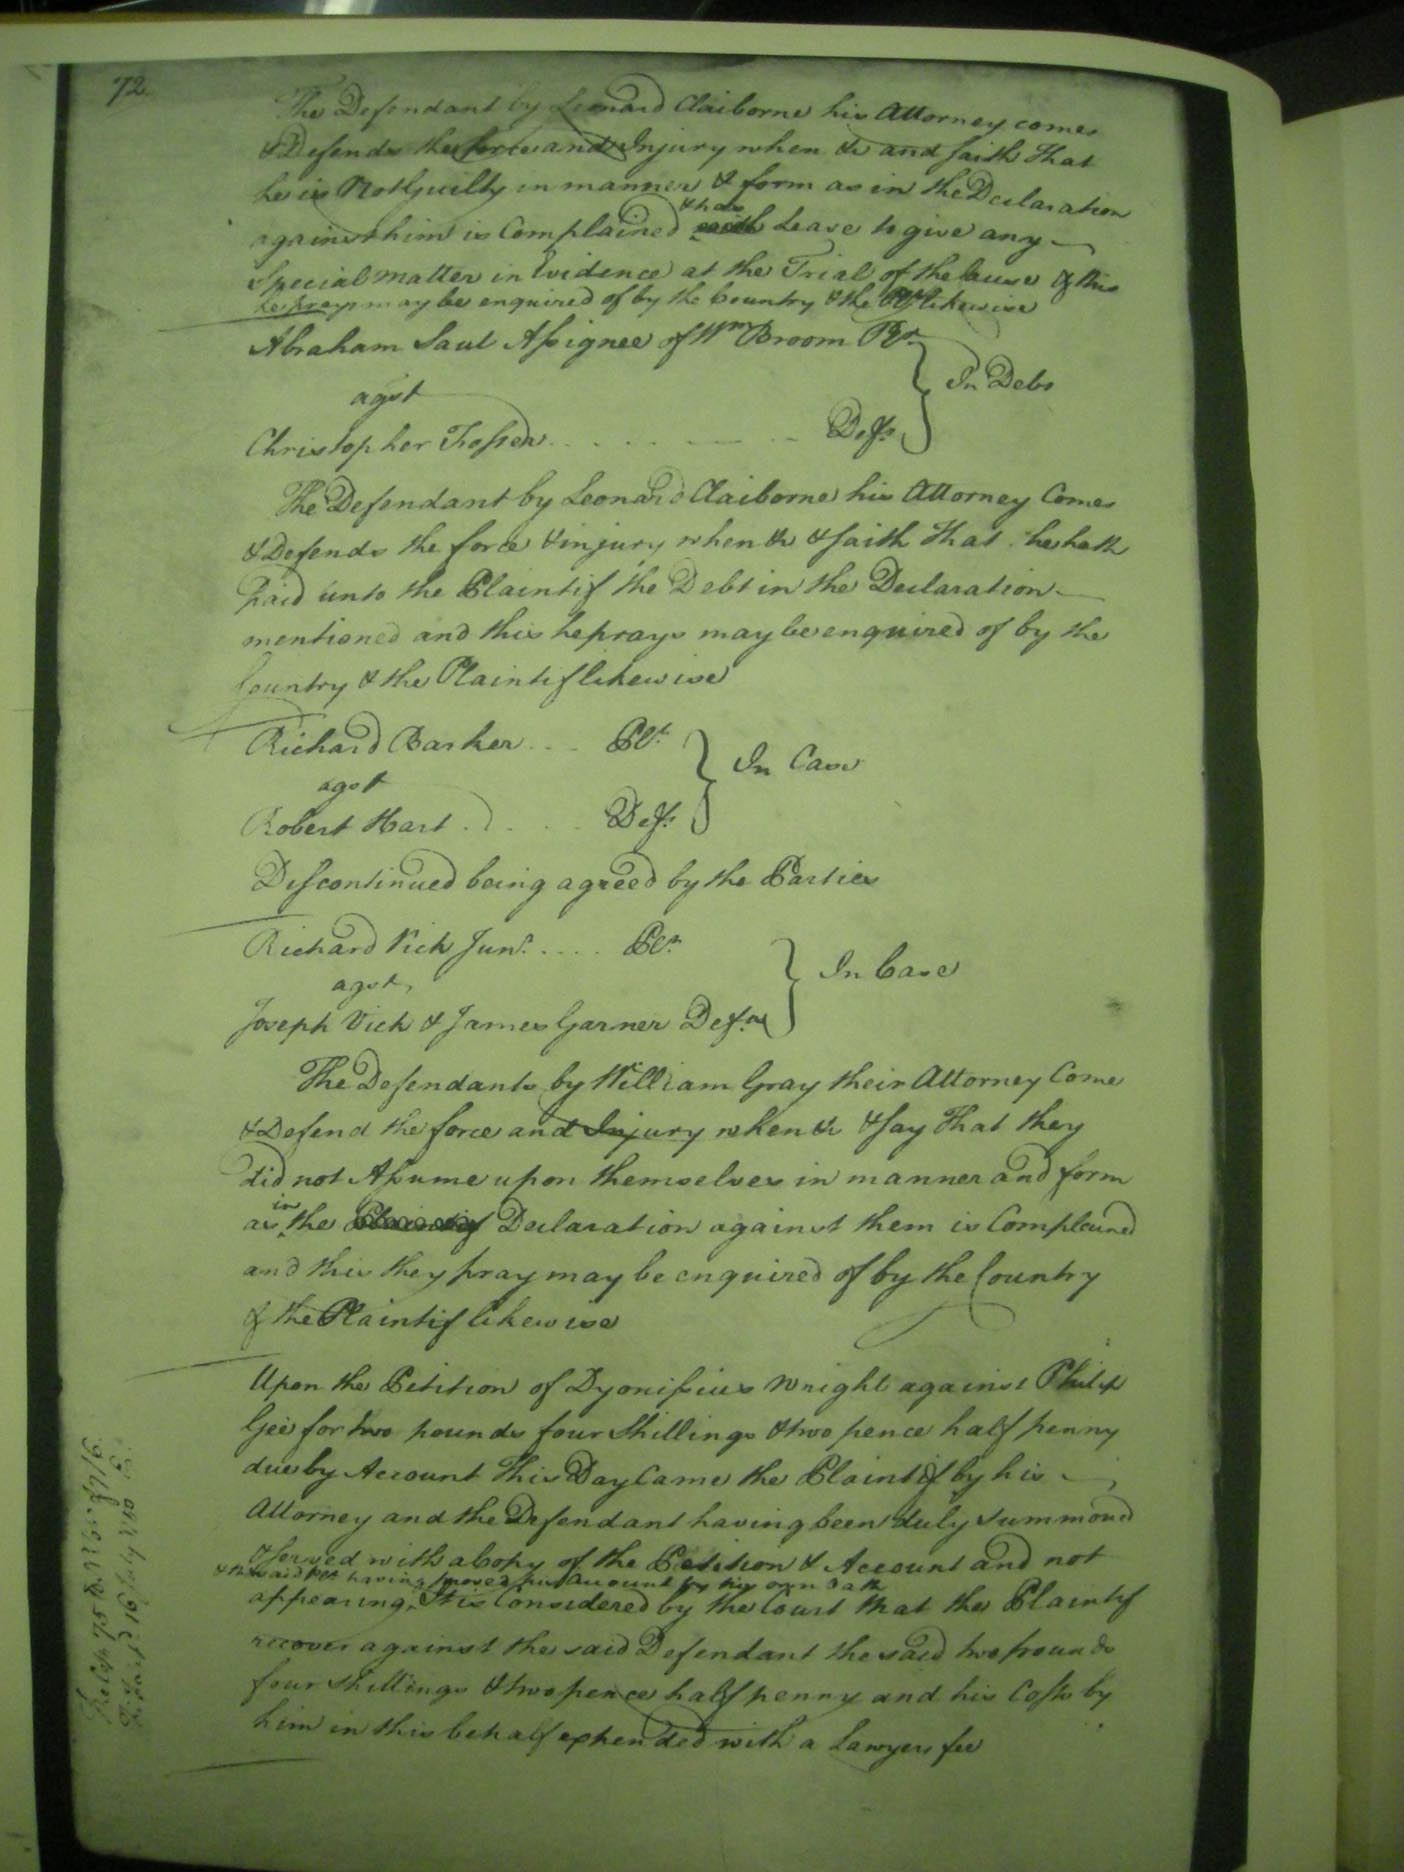 72
The Defendant by Leonard Claiborne his Attorney comes
& Defends the force and Injury when &c and saith that
he is Not Guilty in manner & form as in the Declaration
& hath
against him is Complained Leave to give any
Special matter in Evidence at the Trial of the Cause & this
he prays may be enquired of by the Country & the Plt likewise
Abraham Saul Assignee of Wm Broom Plt.
In Debt
agst
Christopher Deft.
The Defendant by Leonard Claiborne his Attorney Comes
& Defends the force & injury when &c & saith that he hath
paid unto the Plaintif the Debt in the Declaration
mentioned and this he prays may be enquired of by the
Country & the Plaintif likewise
Richard Barker Plt.
In Case
agst
Robert Hart Deft.
Discontinued being agreed by the Parties
Richard Vick Junr. Plt.
In Case
agst.
Joseph Vick & James Garner Defts
The Defendants by William Gray their Attorney Come
& Defend the force and Injury when &c & say that they
did not Assume upon themselves in manner and form
in
as the Plaintif Declaration against them is Complained
and this they pray may be enquired of by the Country
& the Plaintif likewise
Upon the Petition of Dyonissius Wright against Philip
Gee for two pounds four Shillings & two pence half penny
due by Account This Day Came the Plaintif by his
Attorney and the Defendant having been duly summoned
& served with a Copy of the Petition & Account and not
& the said Plt having proved his Account by his own Oath
appearing, It is Considered by the Court that the Plaintif
recover against the said Defendant the said two pounds
four Shillings & two pence half penny and his Costs by
him in this behalf expended with a Lawyers fee